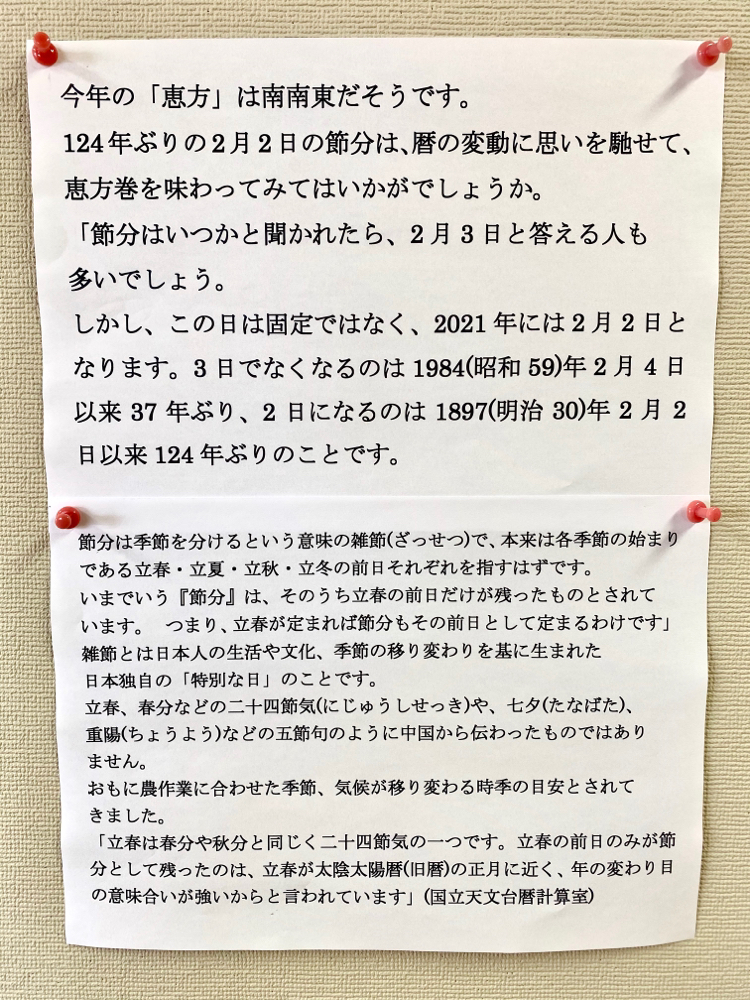 今年の「恵方」は南南東だそうです。
124年ぶりの2月2日の節分は、暦の変動に思いを馳せて、
恵方巻を味わってみてはいかがでしょうか。
「節分はいつかと聞かれたら、2月3日と答える人も
多いでしょう。
しかし、この日は固定ではなく、2021年には2月2日と
なります。3日でなくなるのは1984(昭和59)年2月4日
以来37年ぶり、2日になるのは1897(明治30)年2月2
日以来124年ぶりのことです。
節分は季節を分けるという意味の雑節(ざっせつ)で、本来は各季節の始まり
である立春・立夏・立秋・立冬の前日それぞれを指すはずです。
いまでいう『節分』は、そのうち立春の前日だけが残ったものとされて
います。　つまり、立春が定まれば節分もその前日として定まるわけです」
雑節とは日本人の生活や文化、季節の移り変わりを基に生まれた
日本独自の「特別な日」のことです。
立春、春分などの二十四節気(にじゅうしせっき)や、七夕(たなばた)、
重陽(ちょうよう)などの五節句のように中国から伝わったものではあり
ません。
おもに農作業に合わせた季節、気候が移り変わる時季の目安とされて
きました。
「立春は春分や秋分と同じく二十四節気の一つです。立春の前日のみが節
分として残ったのは、立春が太陰太陽暦(旧暦)の正月に近く、年の変わり目
の意味合いが強いからと言われています」(国立天文台暦計算室)